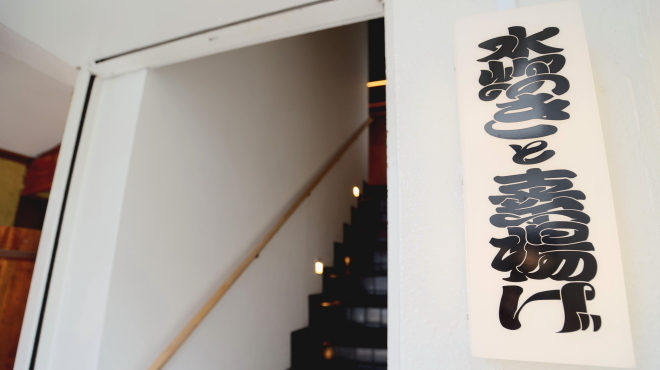 水炊きと素揚げ